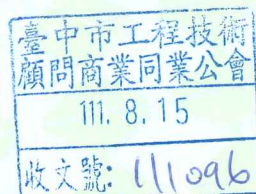 臺中市工程技術
顧問商業同業公會
111. 8. 15
收文號: 111096